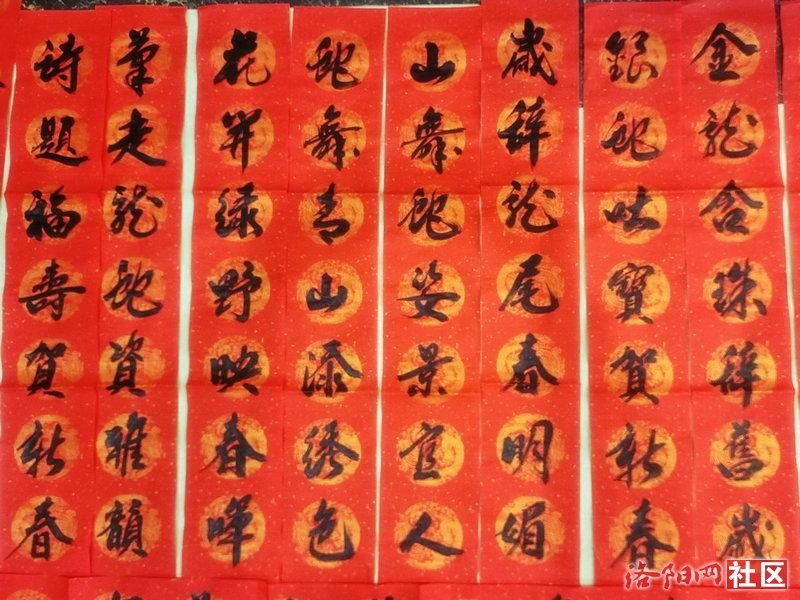 金龍含珠辭舊歲
銀蛇吐寶賀新春
歲辭龍尾春明媚
山舞蛇姿景宜人
蛇舞青山添綉色
花開緑野映春暉
筆走龍蛇資雅韻
詩題福壽賀新春
洛阳网社区